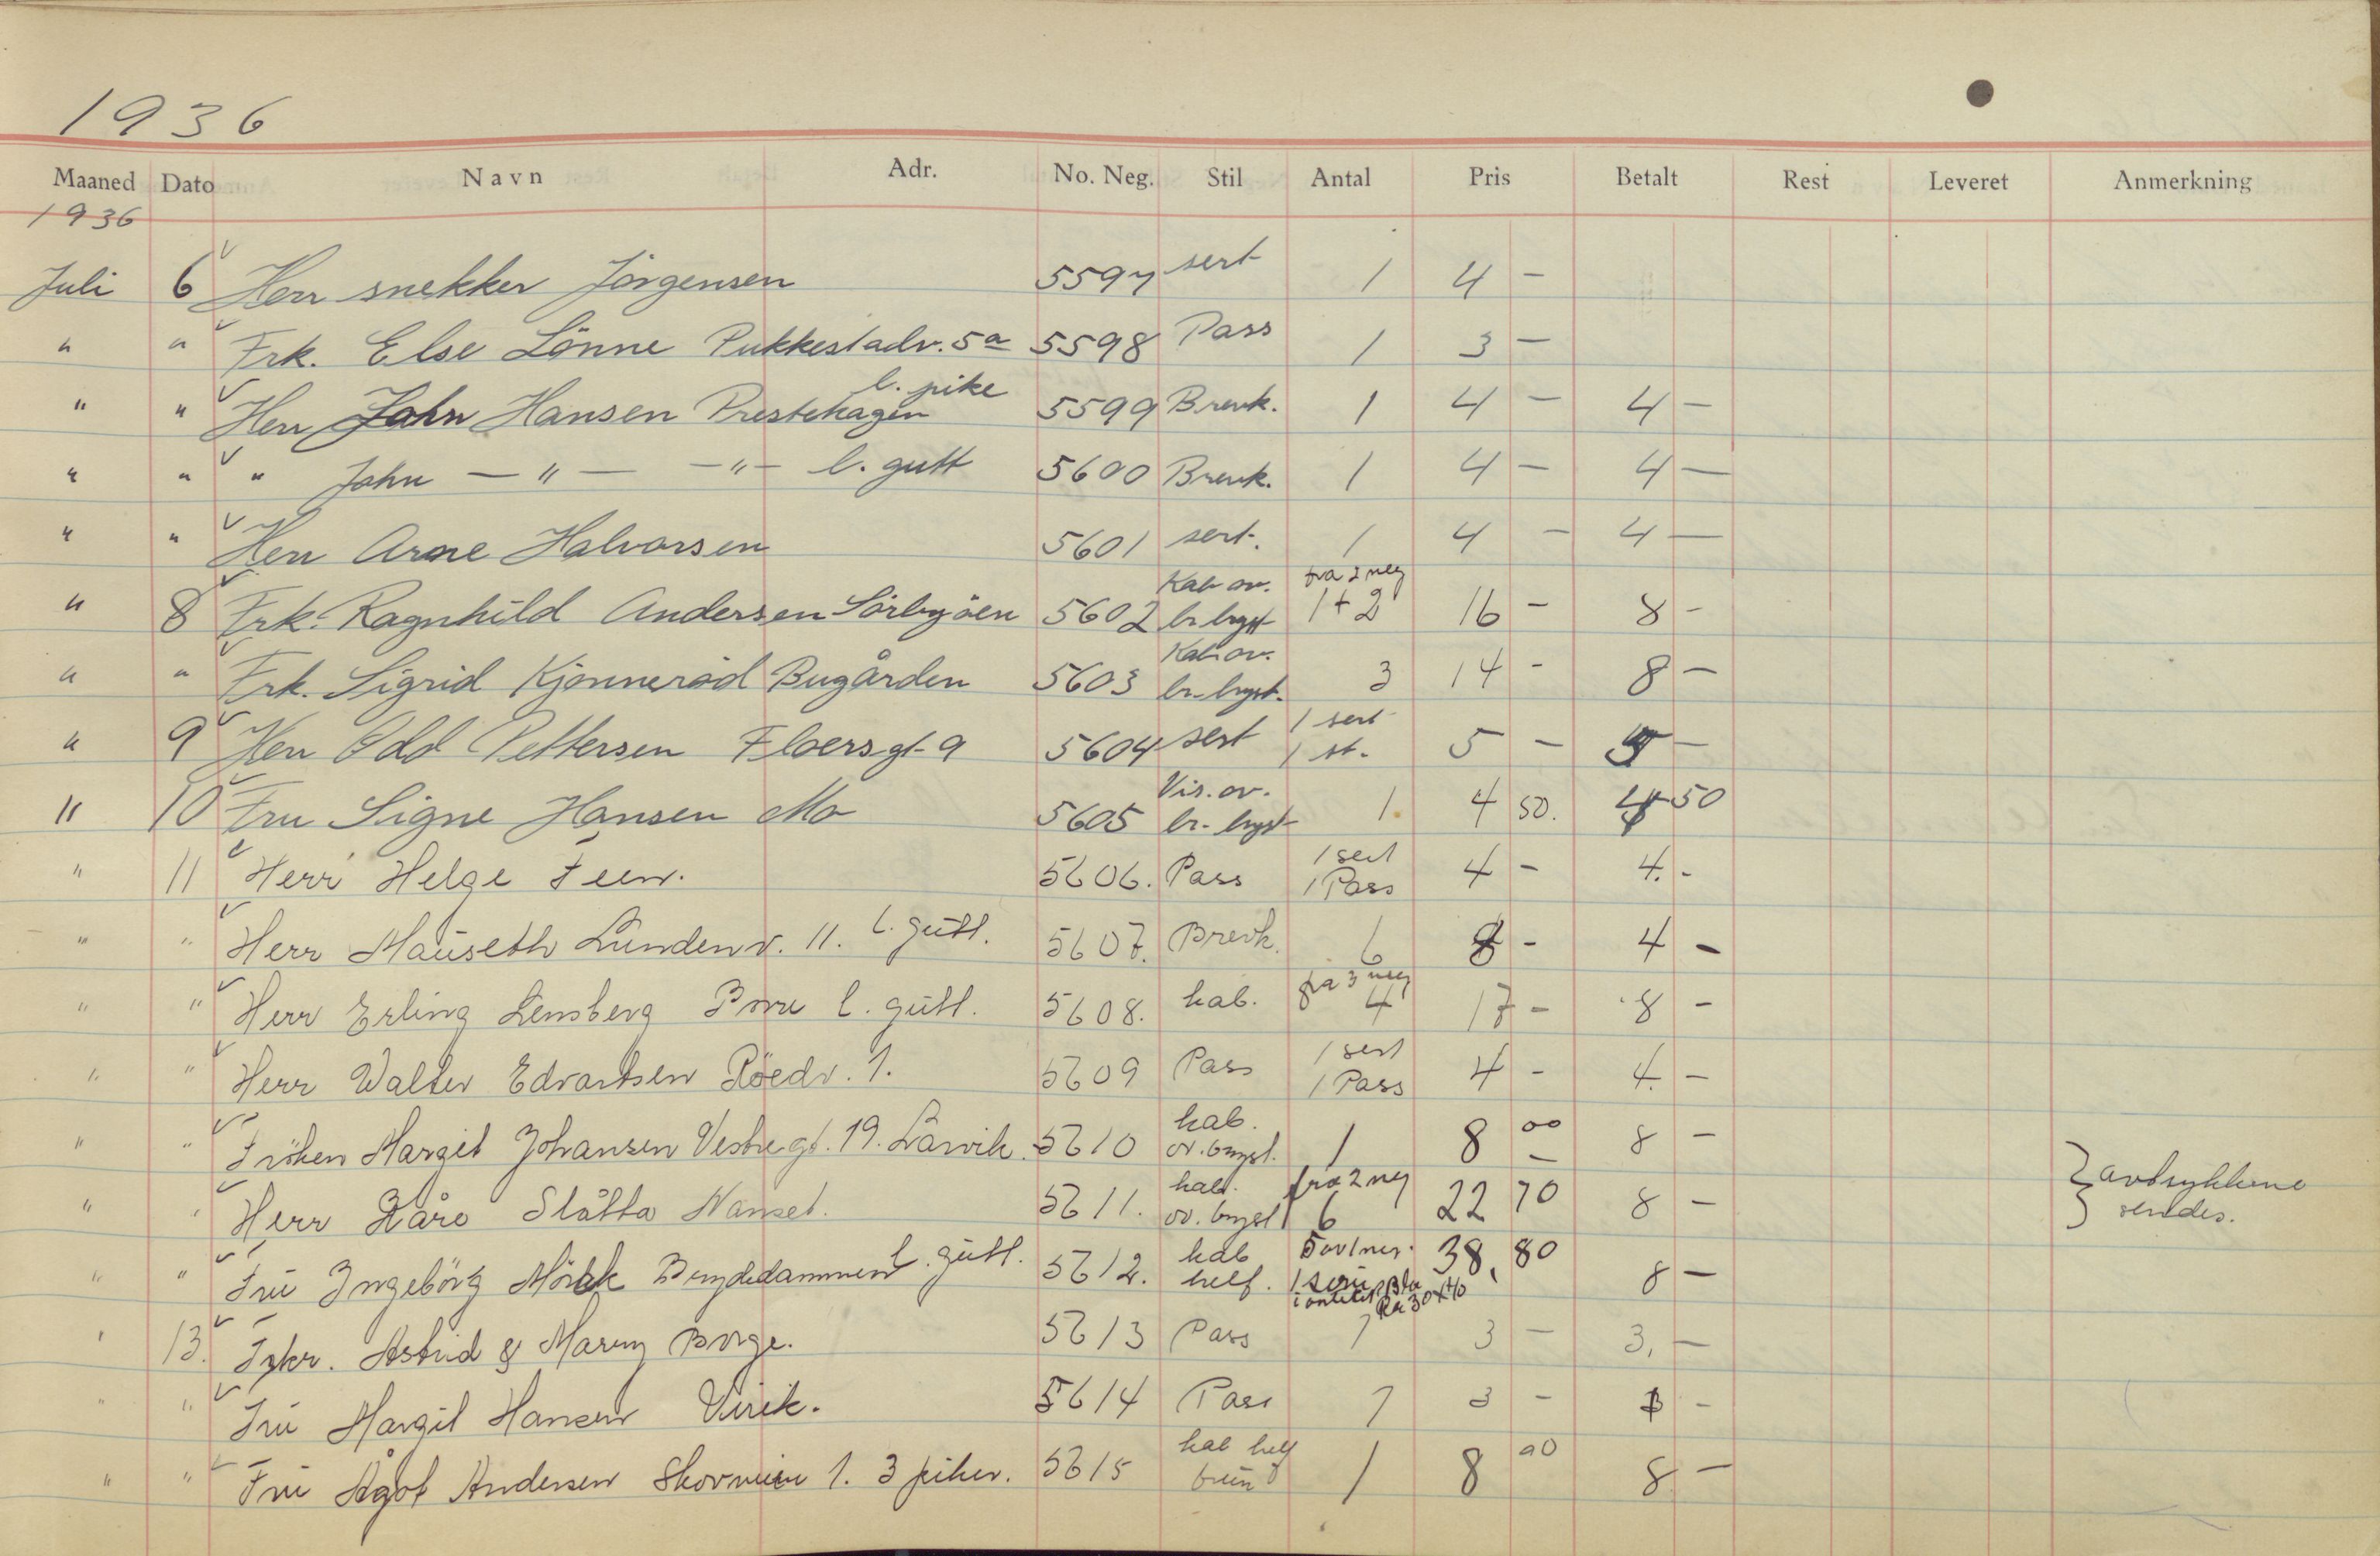 1936
Maaned Dato Navn Adr. No. Neg. Stil Antal Pris Betalt Rest Leveret Anmerkning
1936
Juli 6 Herr snekker Jörgensen 5597 sert 1 4 -
" " Frk. Else Lönne Pukkestadv. 5a 5598 Pass 1 3 -
" " Herr John Hansen Prestehagen l. pike 5599 Brevk. 1 4 - 4 -
" " " John - " - - " - l. gutt 5600 Brevk. 1 4 - 4 -
" " Herr Arne Halvorsen 5601 sert. 1 4 - 4 -
" 8 Frk. Ragnhild Andersen Sörbyöen 5602 Kab ov. br. byst fra 2 neg 1 + 2 16 - 8 -
" " Frk. Sigrid Kjönneröd Bugården 5603 Kab ov. br. byst. 3 14 - 8 -
" 9 Herr Odd Pettersen Floersgt. 9 5604 sert 1 sert 1 st. 5 - 5 -
" 10 Fru Signe Hansen Mo 5605 Vis. ov. br. byst 1 4 50. 4 50
" 11 Herr Helge Feen. 5606. Pass 1 sert 1 Pass 4 - 4. -
" " Herr Mauseth Lundenv. 11. l. gutt. 5607. Brevk. 6 8 - 4 -
" " Herr Erling Lensberg l. gutt. 5608. kab. fra 3 neg 4 17 - 8 -
" " Herr Walter Edvartsen Röedv. 1. 5609 Pass 1 sert 1 Pass 4 - 4. -
" " Fröken Margit Johansen Vestregt. 19. Larvik. 5610 kab. ov. bryst. 1 8 00 8 -
" " Herr Kåre Slåtta Nanset. 5611. kab. ov. bryst fra 2 neg 6 22 70 8 - } avtrykkene sendes.
" " Fru Ingebörg Mörk Brydedammen l. gutt. 5612. kab helf. 5 av 1 neg. 1 serie 30x40 38, 80 8 -
" 13. Frkr. Astrid & Marny Borge. 5613 Pass 1 3 - 3, -
" " Fru Margit Hansen Virik. 5614 Pass 1 3 - 3 -
" " Fru Ågot Andersen 1. 3 piker. 5615 kab helf brun 1 8 00 8 -